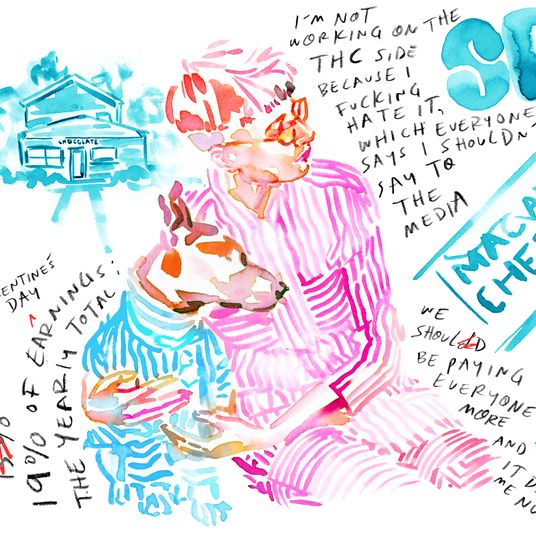 CHOCOLATE
I'M NOT
WORKING ON THE
THC SIDE
BECAUSE I
FUCKING
HATE IT,
WHICH EVERYONE
SAYS I SHOULDN'
SAY TO
THE
MEDIA
WE
SHOULD
BE PAYING
EVERYONE
MORE
AND
IT D
ME NU
ENTINE'S
DAY
19% OF EARNINGS:
THE YEARLY TOTAL,